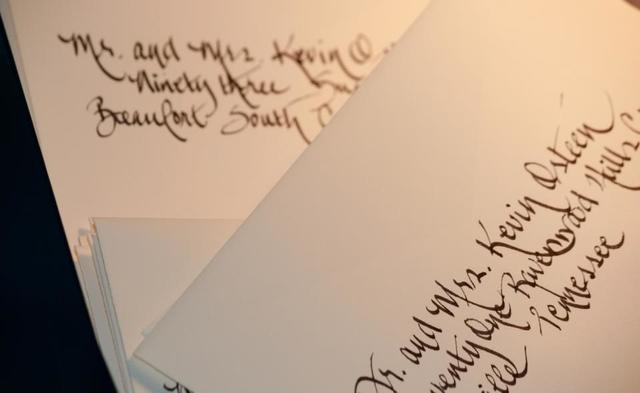 Mr. and Mrs. Kevin O
Ninety three
Beaufort South
Dr. and Mrs. Kevin Osteen
Ravenwood Hills
Tennessee